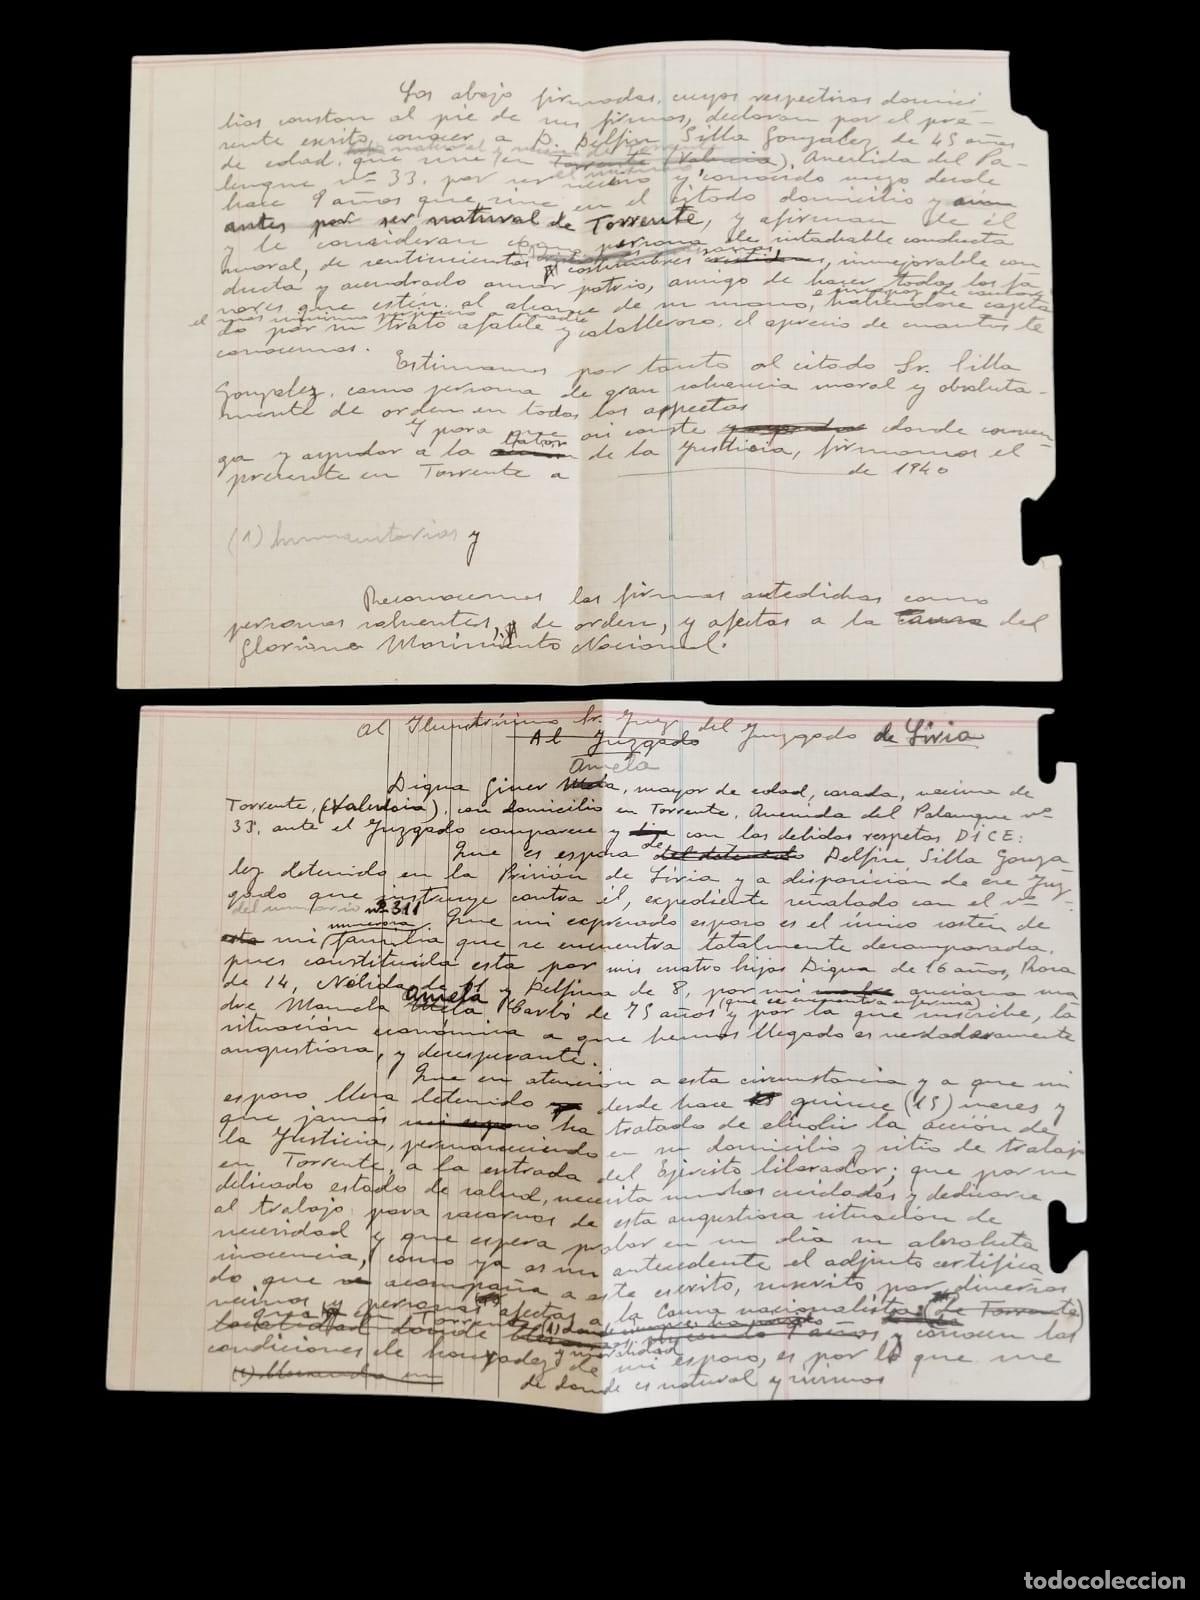 Los abajo firmadas, cuyos respectivos domici-
lios constan al pie de sus firmas, declaran por el pre-
sente escrito, conocer a D. Delfin Silla Gonzalez de 45 años
natural y vecino de Torrente
de edad, que vive en Torrente (Valencia), Avenida del Pa-
el mismo
lengue nº 33, por ser vecino y conocido suyo desde
hace 9 años que vive en el citado domicilio y aun
antes por ser natural de Torrente, y afirman de él
y le consideran como persona de intachable conducta
moral, de sentimientos y costumbres cristianas, inmejorable con
ducta y acendrado amor patrio, amigo de hacer todos los fa-
e incapaz de causar
vores que estén al alcance de su mano, habiéndose capta
el más mínimo perjuicio a nadie
do por su trato afable y caballeroso, el aprecio de cuantos le
conocemos.
Estimamos por tanto al citado Sr. Silla
Gonzalez, como persona de gran solvencia moral y absoluta-
mente de orden en todos los aspectos
Y para que asi conste donde conven-
labor
ga y ayudar a la de la Justicia, firmamos el
presente en Torrente a de 1940
(1) humanitarios y
Reconocemos las firmas antedichas como
personas solventes, de orden, y afectas a la Causa del
Glorioso Movimiento Nacional.
Al Ilustrísimo Sr. Juez del Juzgado de Liria
Al Juzgado
Amela
Digna Giner Mela, mayor de edad, casada, vecina de
Torrente, (Valencia), con domicilio en Torrente, Avenida del Palengue nº
33, ante el Juzgado comparece y con los debidos respetos DICE:
de
Que es esposa del detenido Delfin Silla Gonza-
lez detenido en la Prisión de Liria y a disposición de ese Juz-
gado que instruye contra él, expediente señalado con el nº
del sumario nº 311
numerosa
Que mi expresado esposo es el único sostén de
esta mi familia que se encuentra totalmente desamparada,
pues constituida esta por mis cuatro hijos Digna de 16 años, Rosa
de 14, Nélida de 11 y Delfina de 8, por mi madre anciana ma
Amela
(que se encuentra enferma)
dre Manela Mela Barbó de 75 años y por la que suscribe, la
situación económica a que hemos llegado es verdaderamente
angustiosa, y desesperante.
Que en atención a esta circunstancia y a que mi
esposo lleva detenido desde hace 15 quince (15) meses y
que jamás mi esposo ha tratado de eludir la acción de
la Justicia, permaneciendo en su domicilio y sitio de trabajo
en Torrente, a la entrada del Ejército liberador; que por su
delicado estado de salud, necesita muchos cuidados y dedicarse
al trabajo para sacarnos de esta angustiosa situación de
necesidad y que espera probar en su día su absoluta
inocencia, como ya es un antecedente el adjunto certifica
do que se acompaña a este escrito, suscrito por diversos
vecinos y personas afectas a la Causa nacionalista (de Torrente)
localidad donde 9 años y conocen las
y moralidad
condiciones de honradez de mi esposo, es por lo que me
(1) Llevando en
de donde es natural y vivimos
todocoleccion